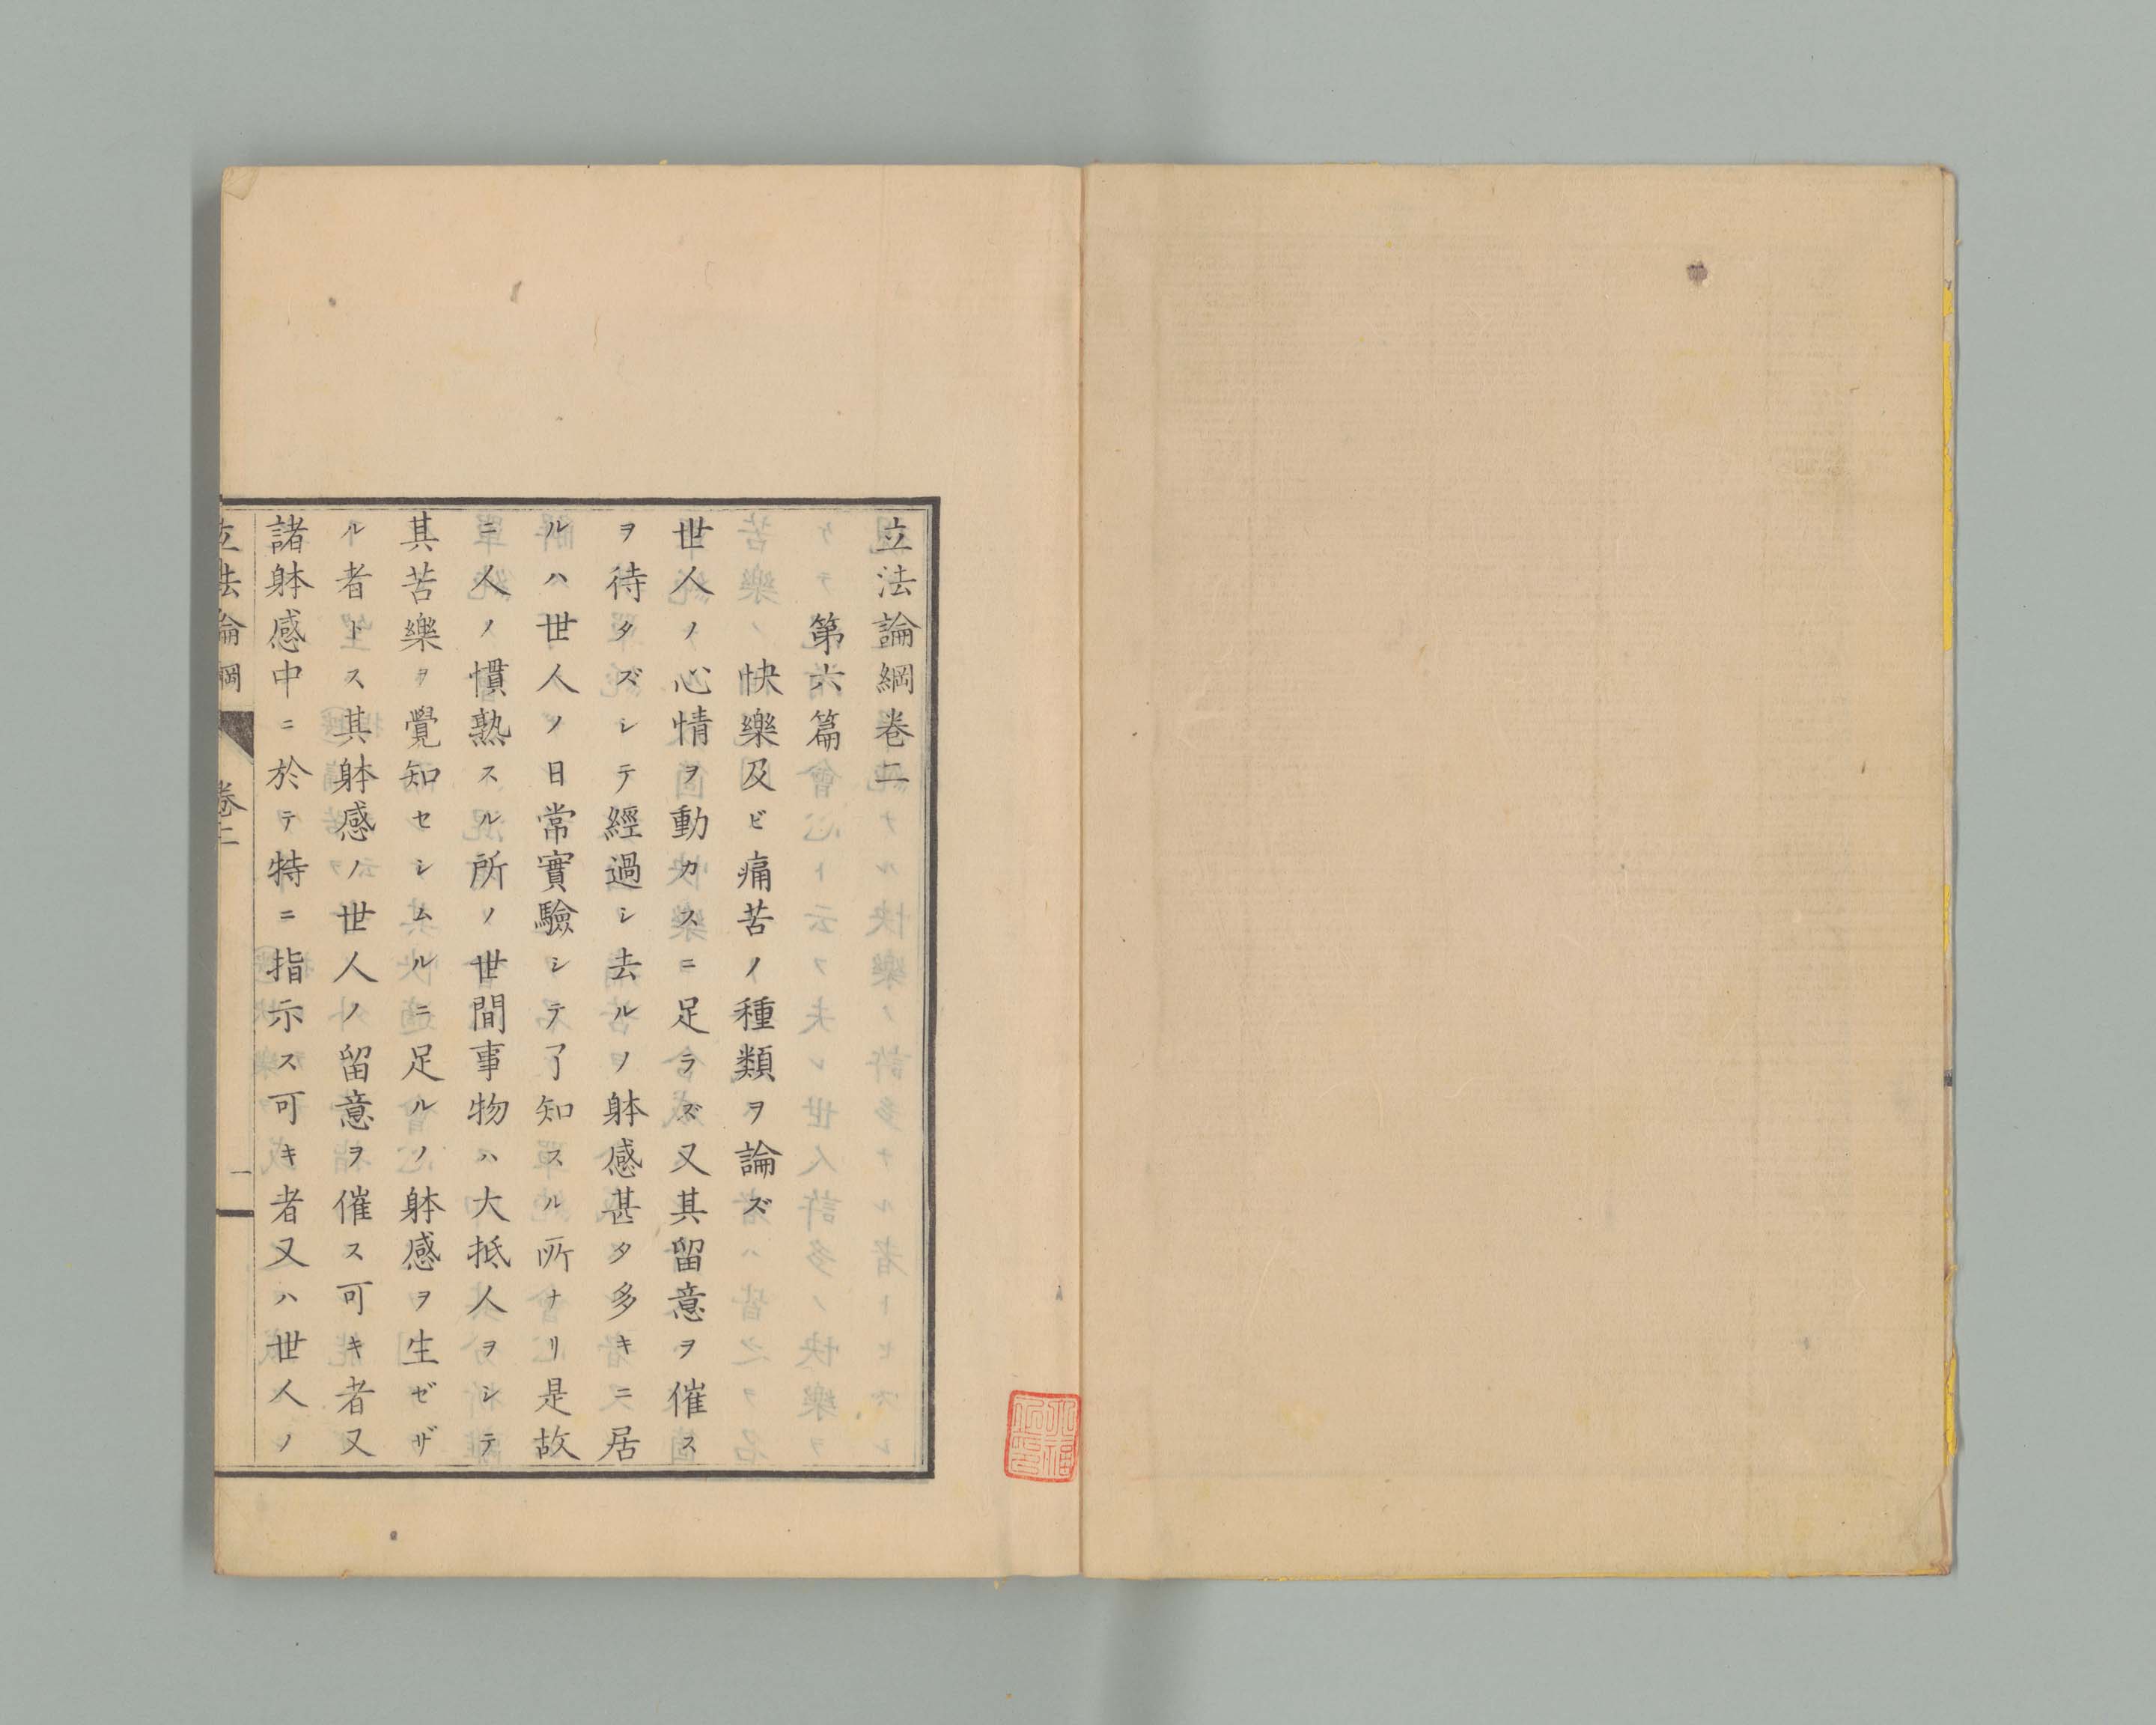 立法論綱卷二
第六篇
快樂及ビ痛苦ノ種類ヲ論ズ
世人ノ心情ヲ動カスニ足ラズ又其留意ヲ催ス
ヲ待タズシテ經過シ去ルノ躰感甚タ多キニ居
ルハ世人ノ日常實驗シテ了知スル所ナリ是故
ニ人ノ慣熟スル所ノ世間事物ハ大抵人ヲシテ
其苦樂ヲ覺知セシムルニ足ルノ躰感ヲ生ゼザ
ル者トス其躰感ノ世人ノ留意ヲ催ス可キ者又
諸躰感中ニ於テ特ニ指示ス可キ者又ハ世人ノ
立法論綱 卷二 一